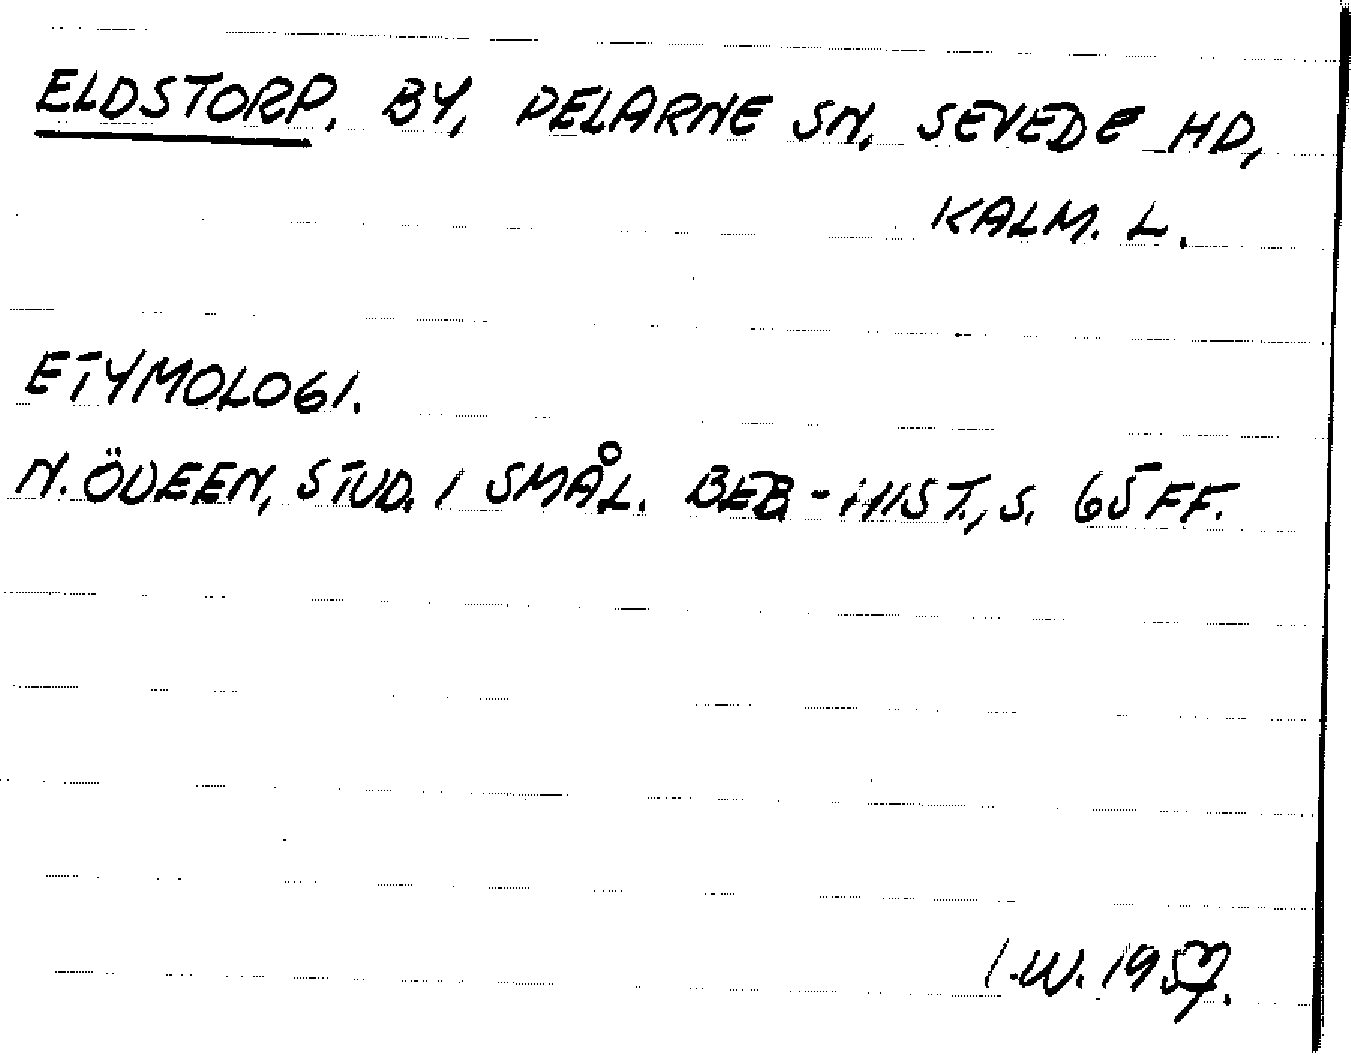 ELDSTORP, BY, PELARNE SN, SEVEDE HD,
KALM. L.
ETYMOLOGI.
N. ÖDEEN, STUD. I SMÅL. BEB.-HIST., S. 65 FF.
I.W. 1957.